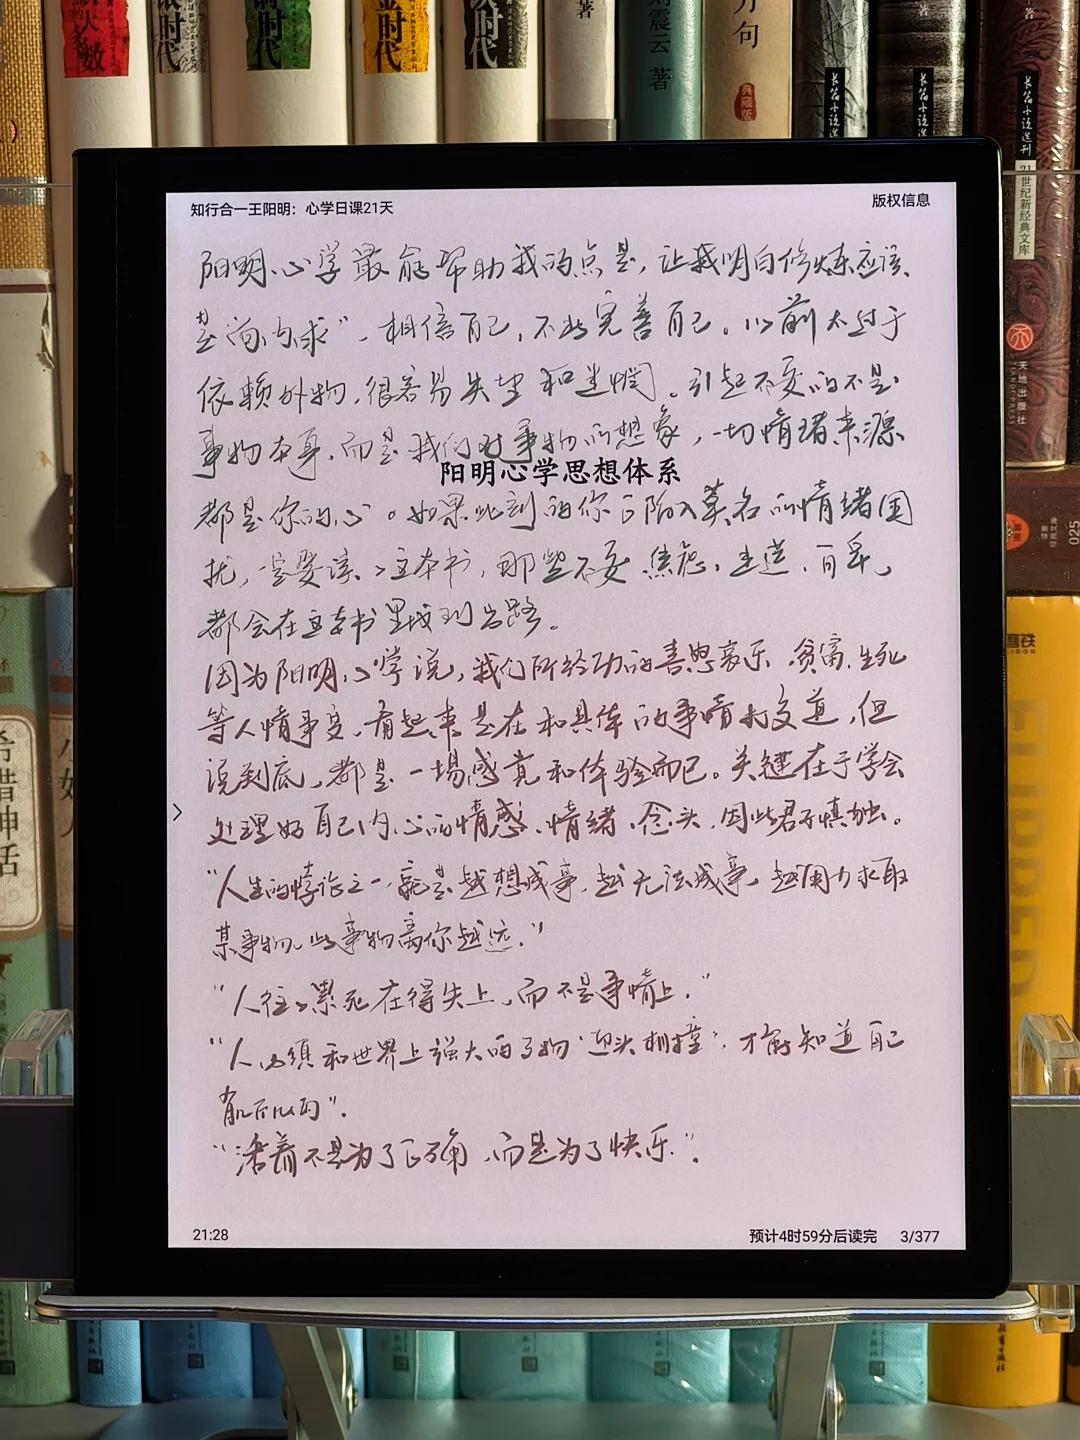 时代
时代
金时代
时代
著
刘震云 著
万句
典藏版
长篇小说选刊
长篇小说选刊
长篇小说选刊
21世纪新经典文库
天地出版社
025
希腊神话
知行合一王阳明：心学日课21天
版权信息
阳明心学最能帮助我的点是，让我明白修炼应该
是“向内求”，相信自己，不断完善自己。以前太过于
依赖外物，很容易失望和迷惘。引起不安的不是
事物本身，而是我们对事物的想象，一切情绪来源
阳明心学思想体系
都是你的心。如果此刻的你已陷入莫名的情绪困
扰，一定要读一读这本书，那些不安、焦虑、迷茫、自卑，
都会在这本书里找到出路。
因为阳明心学说，我们所经历的喜怒哀乐、贫富、生死
等人情事变，看起来是在和具体的事情打交道，但
说到底，都是一场感觉和体验而已。关键在于学会
处理好自己内心的情感、情绪、念头，因此君子慎独。
“人生的悖论之一，就是越想成事，越无法成事，越用力求取
某事物，此事物离你越远。”
“人往往累死在得失上，而不是事情上。”
“人必须和世界上强大的事物‘迎头相撞’，才能知道自己
有几斤几两”。
“活着不是为了正确，而是为了快乐”。
21:28
预计4时59分后读完
3/377